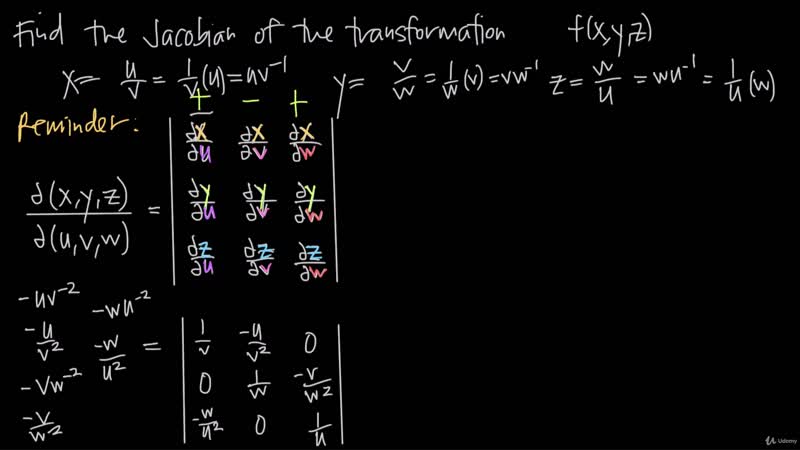 Find the Jacobian of the transformation f(x,y,z)
x = u/v = 1/v (u) = uv⁻¹ y = v/w = 1/w (v) = vw⁻¹ z = w/u = wu⁻¹ = 1/u (w)
+ − +
Reminder:
∂x/∂u ∂x/∂v ∂x/∂w
∂(x,y,z)/∂(u,v,w) = ∂y/∂u ∂y/∂v ∂y/∂w
∂z/∂u ∂z/∂v ∂z/∂w
-uv⁻² -wu⁻²
-u/v² -w/u² = | 1/v -u/v² 0 |
-vw⁻² | 0 1/w -v/w² |
-v/w² | -w/u² 0 1/u |
Udemy